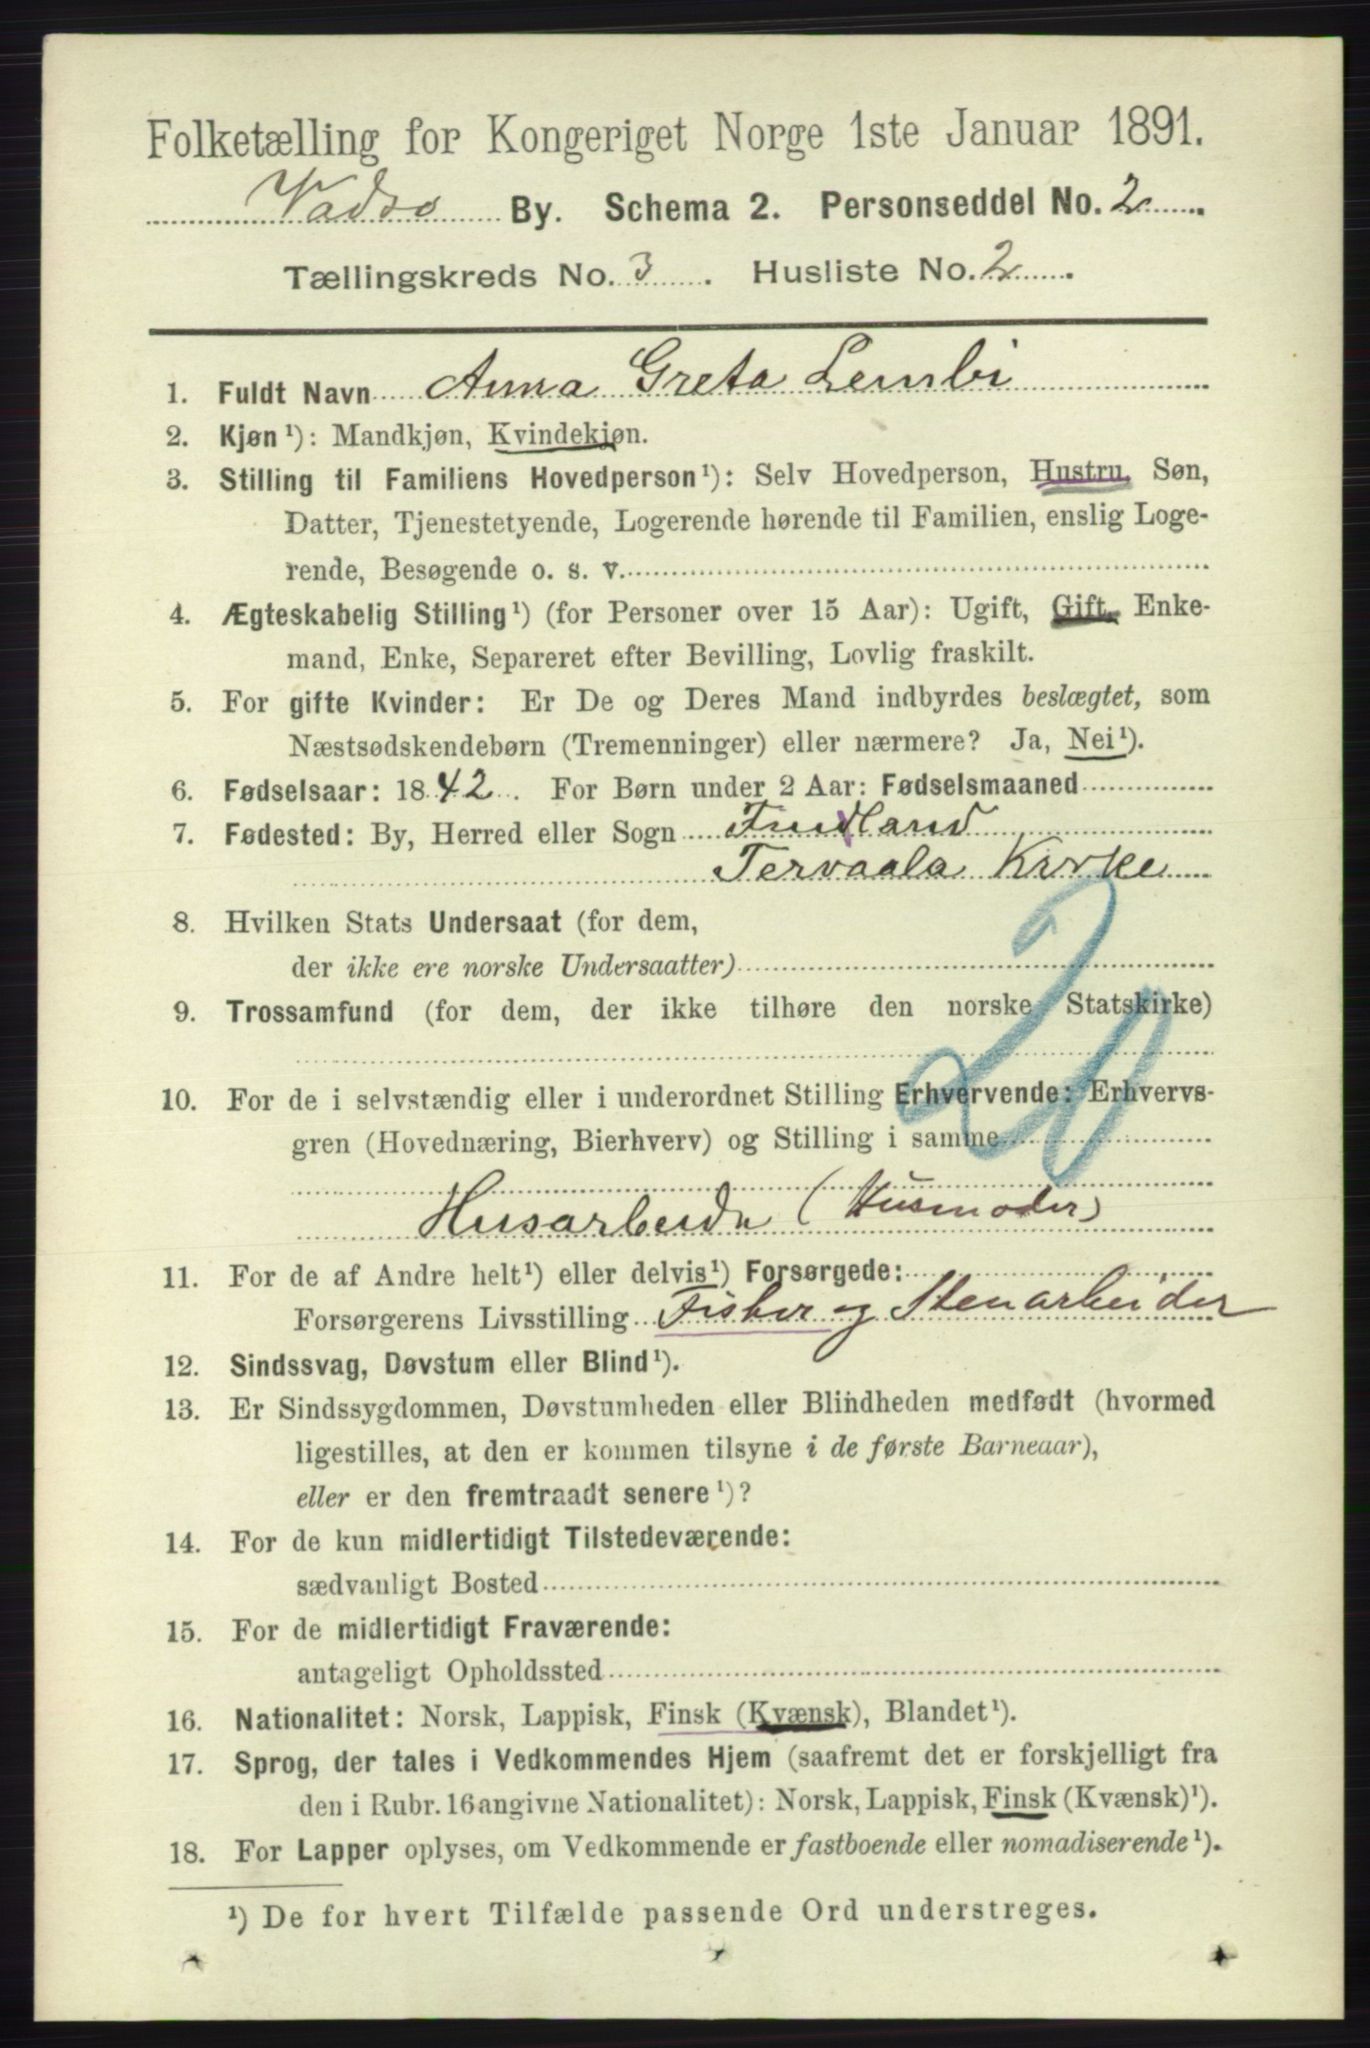 Folketælling for Kongeriget Norge 1ste Januar 1891.
Vadsø By. Schema 2. Personseddel No. 2
Tællingskreds No. 3. Husliste No. 2.
1. Fuldt Navn Anna Greta Lembi
2. Kjøn¹): Mandkjøn, Kvindekjøn.
3. Stilling til Familiens Hovedperson¹): Selv Hovedperson, Hustru, Søn,
Datter, Tjenestetyende, Logerende hørende til Familien, enslig Loge-
rende, Besøgende o. s. v.
4. Ægteskabelig Stilling¹) (for Personer over 15 Aar): Ugift, Gift, Enke-
mand, Enke, Separeret efter Bevilling, Lovlig fraskilt.
5. For gifte Kvinder: Er De og Deres Mand indbyrdes beslægtet, som
Næstsødskendebørn (Tremenninger) eller nærmere? Ja, Nei¹).
6. Fødselsaar: 1842. For Børn under 2 Aar: Fødselsmaaned
7. Fødested: By, Herred eller Sogn Finland
Tervaala Kirke
8. Hvilken Stats Undersaat (for dem,
der ikke ere norske Undersaatter)
9. Trossamfund (for dem, der ikke tilhøre den norske Statskirke)
20
10. For de i selvstændig eller i underordnet Stilling Erhvervende: Erhvervs-
gren (Hovednæring, Bierhverv) og Stilling i samme
Husarbeide (Husmoder)
11. For de af Andre helt¹) eller delvis¹) Forsørgede:
Forsørgerens Livsstilling Fisker og Stenarbeider
12. Sindssvag, Døvstum eller Blind¹).
13. Er Sindssygdommen, Døvstumheden eller Blindheden medfødt (hvormed
ligestilles, at den er kommen tilsyne i de første Barneaar),
eller er den fremtraadt senere¹)?
14. For de kun midlertidigt Tilstedeværende:
sædvanligt Bosted
15. For de midlertidigt Fraværende:
antageligt Opholdssted
16. Nationalitet: Norsk, Lappisk, Finsk (Kvænsk), Blandet¹).
17. Sprog, der tales i Vedkommendes Hjem (saafremt det er forskjelligt fra
den i Rubr. 16 angivne Nationalitet): Norsk, Lappisk, Finsk (Kvænsk)¹).
18. For Lapper oplyses, om Vedkommende er fastboende eller nomadiserende¹).
¹) De for hvert Tilfælde passende Ord understreges.